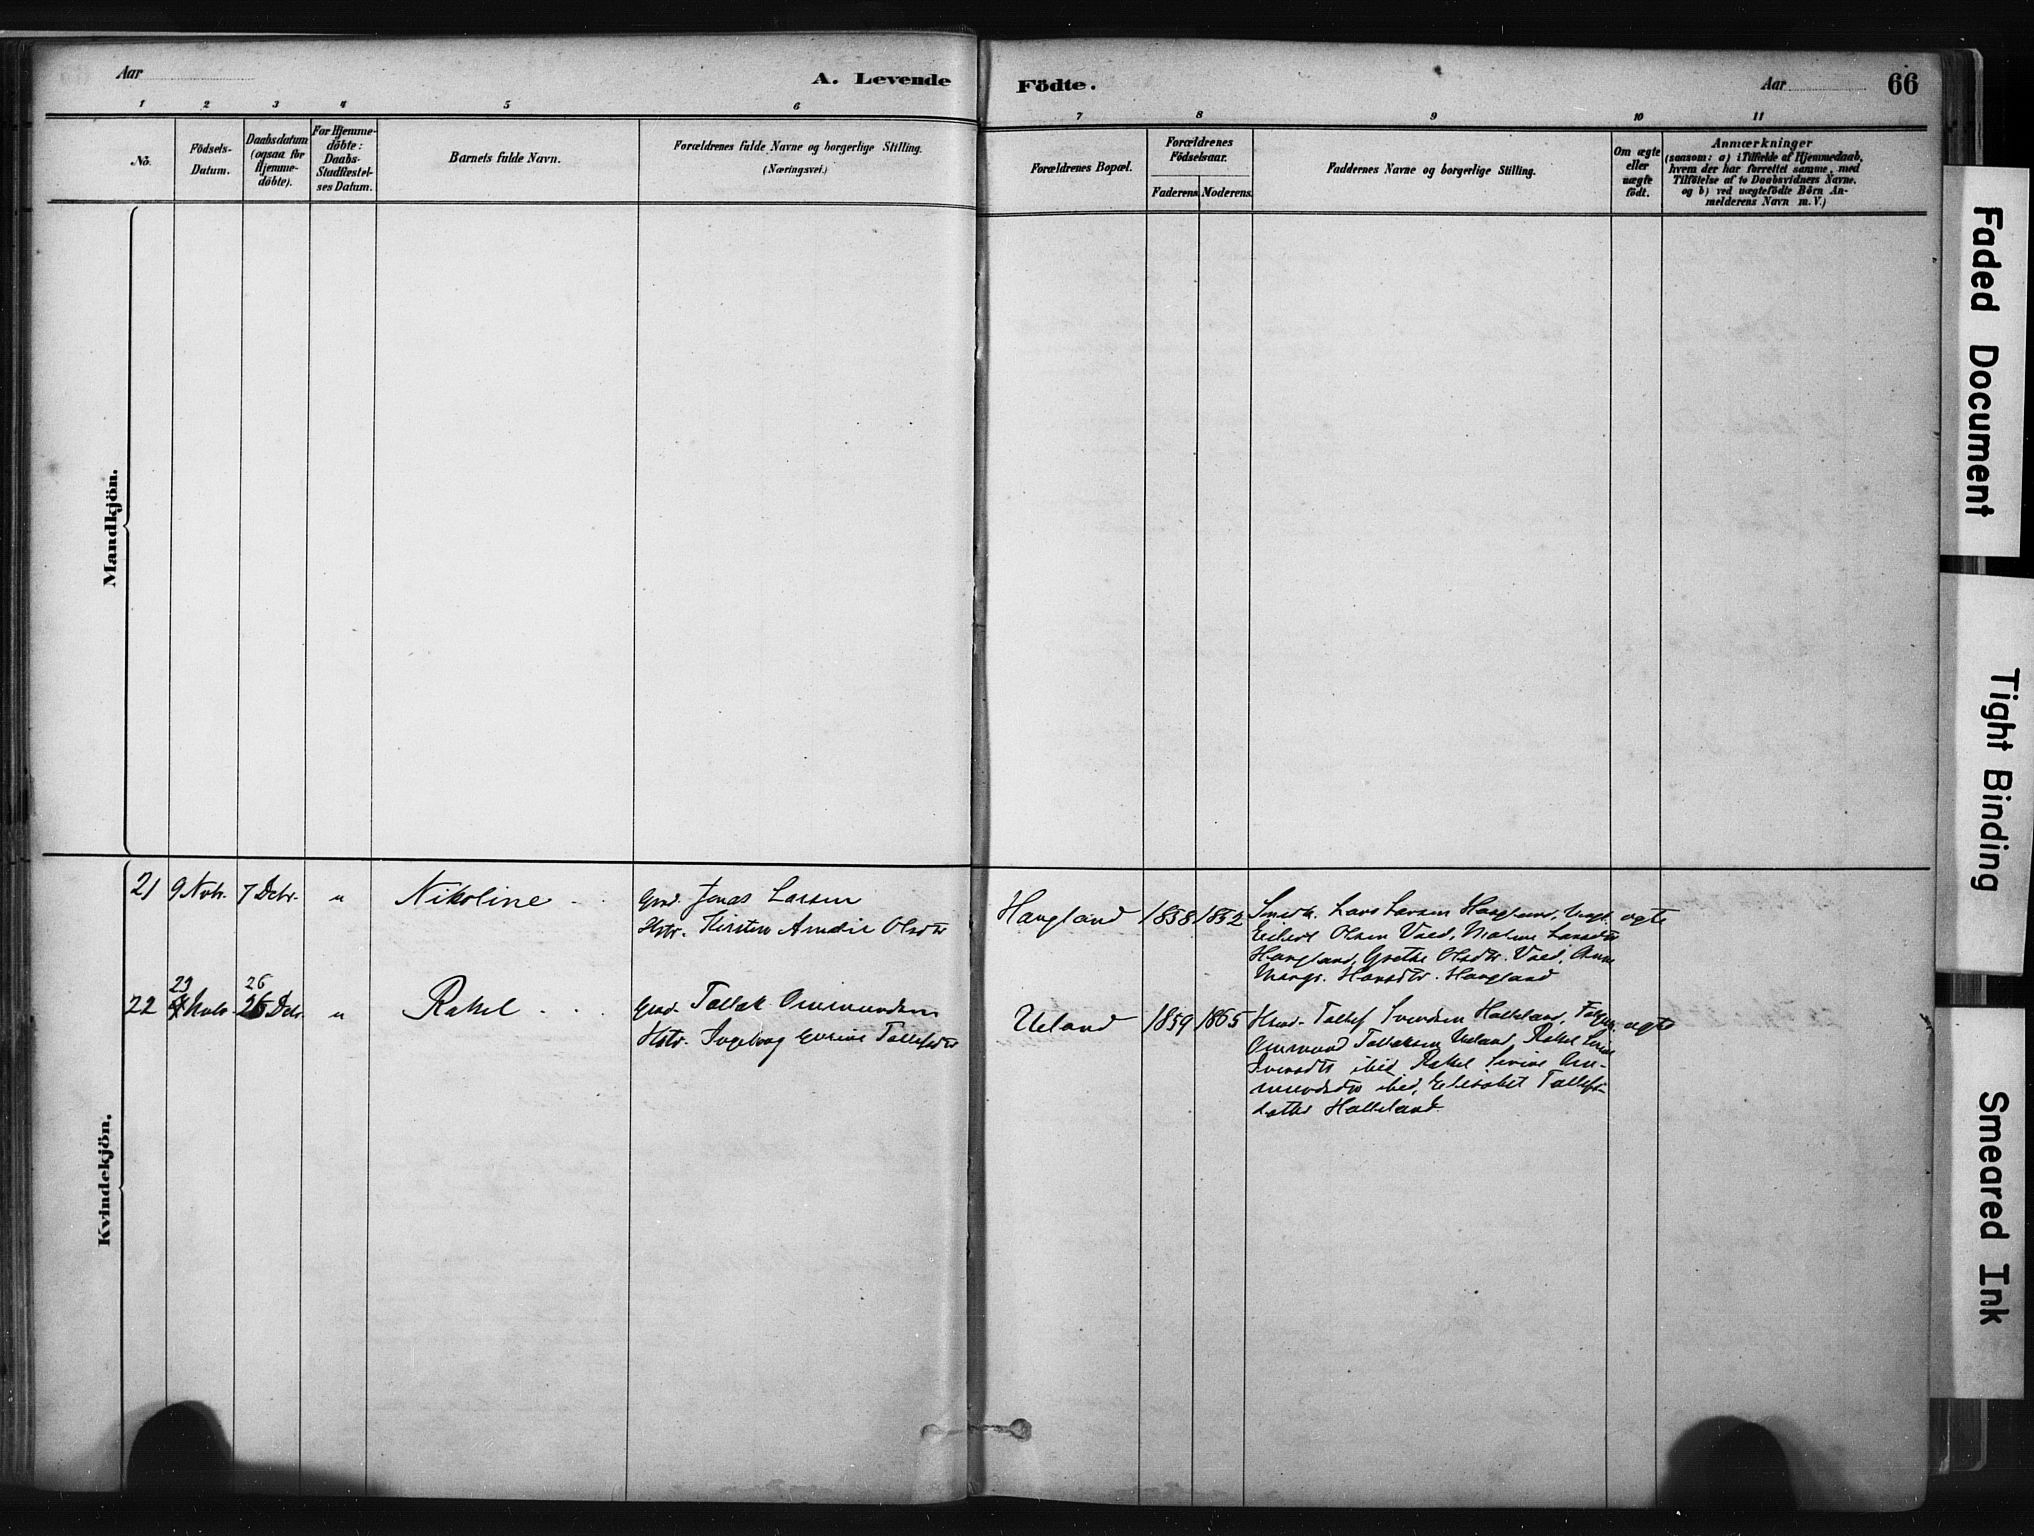 Aar
A. Levende
Födte.
Aar
66
1 2 3 4 5 6 7 8 9 10 11
No.
Födsels-
Datum.
Daabsdatum
(ogsaa for
Hjemme-
döbte).
For Hjemme-
döbte:
Daabs-
Stadfæstel-
ses Datum.
Barnets fulde Navn.
Forældrenes fulde Navne og borgerlige Stilling.
(Næringsvei.)
Forældrenes Bopæl.
Forældrenes
Födselsaar.
Faderens. Moderens.
Faddernes Navne og borgerlige Stilling.
Om ægte
eller
uægte
födt.
Anmærkninger
(saasom: a) i Tilfælde af Hjemmedaab,
hvem der har forrettet samme, med
Tilföielse af to Daabsvidners Navne.
og b) ved uægtefödte Börn An-
melderens Navn m. V.)
Mandkjön.
Kvindekjön.
21 9 Novbr. 7 Decbr. " Nikoline
Gmd. Jonas Larsen
Hstr. Kirsten Amalie Olsdtr
Haugland 1858 1852
Lars Larsen Haugland, ægte
Olsen Larsdtr
Haugland, Grethe Olsdtr.
Hansdtr. Haugland
22 23 Novbr. 26 26 Decbr. " Rakel
Gmd. Tallak Ommundsen
Hstr. Ingeborg Tollefsdtr
Ueland 1859 1865
Tollef Svendsen Halleland, ægte
Ommund Tallaksen Ueland, Rakel
ibid, Rakel Sivine Om-
mundsdtr ibid, Elisabet Tollefs-
datter Halleland
Faded Document
Tight Binding
Smeared Ink